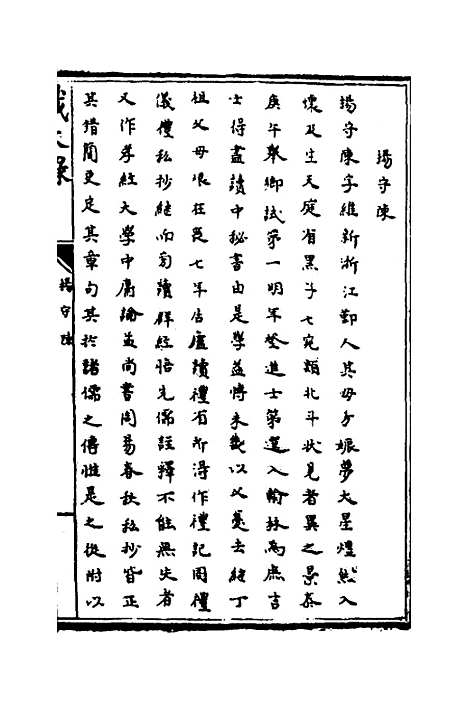 楊守陳
楊守陳字維新浙江鄞人其母方娠夢大星煌然入
懷及生天庭有黑子七宛類北斗狀見者異之景泰
庚午舉鄉試第一明年登進士第選入翰林為庶吉
士得盡讀中秘書由是學益博未幾以父憂去繼丁
祖父母艱在邑七年居廬讀禮有所得作禮記周禮
儀禮私抄繼而旬讀群經悟先儒註釋不能無失者
又作孝經大學中庸論孟尚書周易春秋私抄皆正
其錯簡更定其章句其於諸儒之傳惟是之從附以
楊守陳